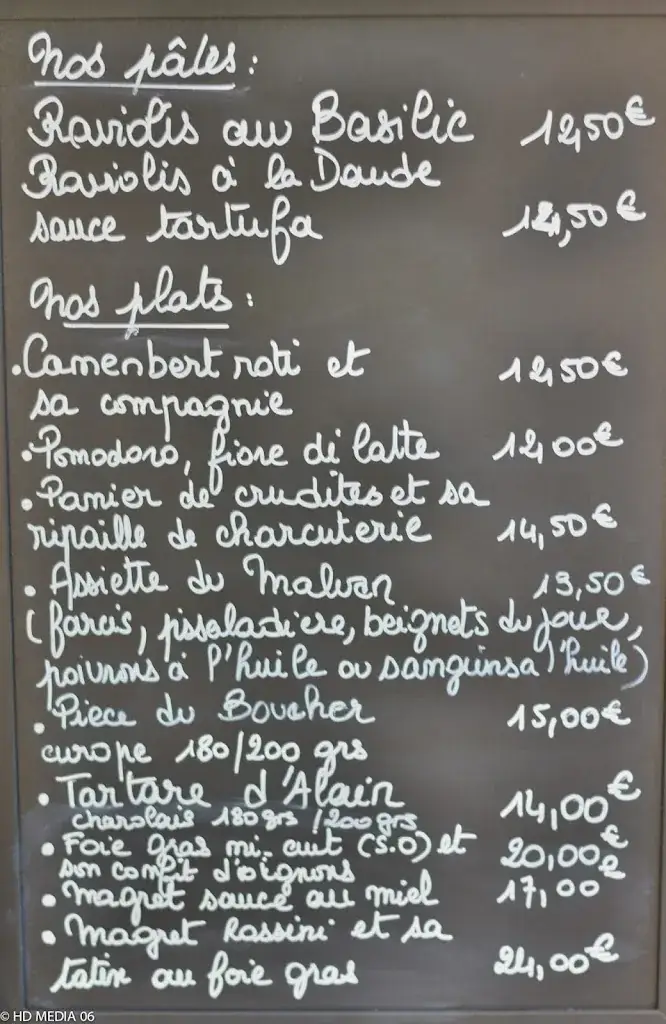 Nos pâtes :
Raviolis au Basilic 12,50€
Raviolis à la Daude
sauce tartufa 12,50€
Nos plats :
.Camenbert roti et 12,50€
sa compagnie
.Pomodoro, fiore di latte 12,00€
.Panier de crudites et sa
ripaille de charcuterie 14,50€
. Assiette du Malvan 13,50€
(farcis, pissaladiere, beignets du jour,
poivrons à l'huile ou sanguinsa l'huile)
. Piece du Boucher 15,00€
europe 180/200 grs
. Tartare d'Alain 14,00€
charolais 180grs /200grs
. Foie gras mi-cuit (S.O) et 20,00€
son confit d'oignons
. Magret sauce au miel 17,00€
. Magret Rossini et sa
tatin au foie gras 24,00€
© HD MEDIA 06